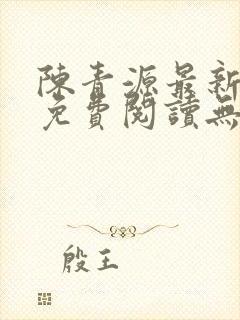 陳青源最新
免費閱讀無
殷王